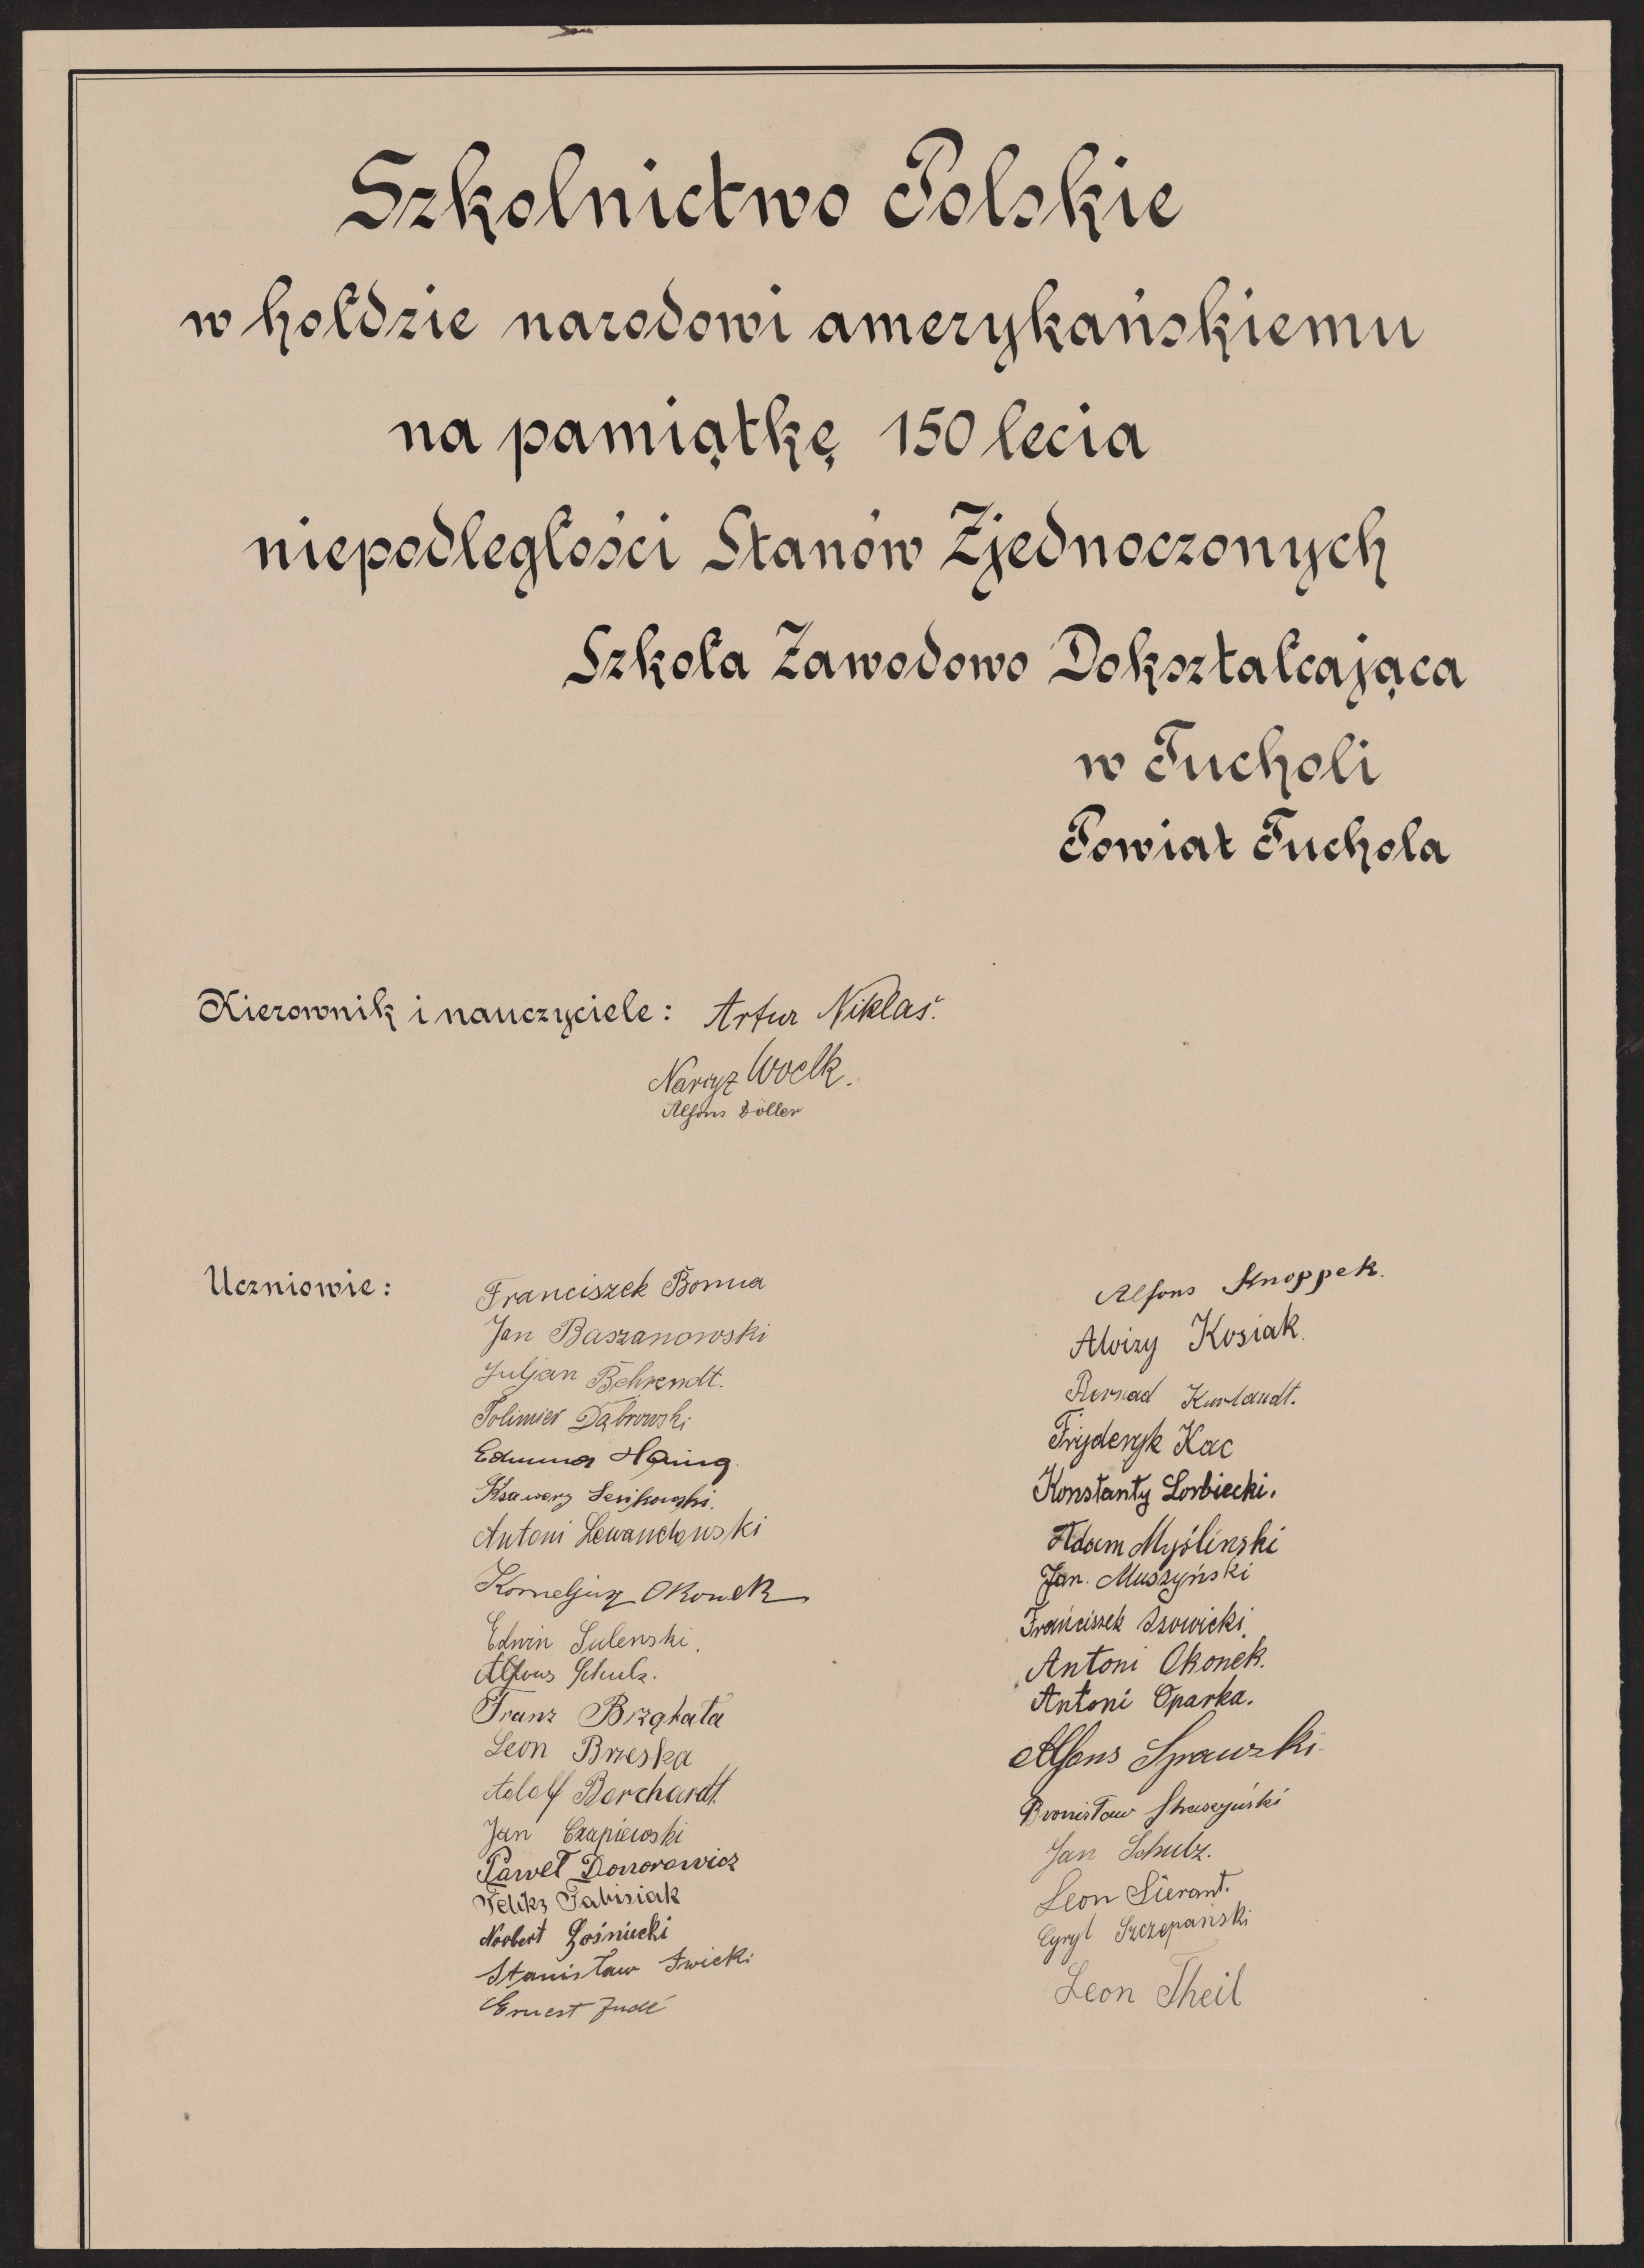 Szkolnictwo Polskie
w hołdzie narodowi amerykańskiemu
na pamiątkę 150 lecia
niepodległości Stanów Zjednoczonych
Szkoła Zawodowo Dokształcająca
w Tucholi
Powiat Tuchola
Kierownik i nauczyciele: Artur Niklas.
Narcyz Woelk.
Alfons Döller
Uczniowie:
Franciszek Bonna
Jan Baszanowski
Juljan Behrendt.
Dąbrowski
Ksawery
Antoni Lewandowski
Korneljusz Okonek
Edwin Sulenski.
Alfons Schulz.
Franz Brząkała
Leon Brzeska
Adolf Borchardt.
Jan Czapiewski
Paweł Donorowicz
Feliks Fabisiak
Norbert Gośniecki
Stanisław
Ernest
Alfons Knoppek.
Aloizy Kosiak.
Bernad Kurlandt.
Fryderyk Kac
Konstanty Lorbiecki.
Adam Myślinski
Jan. Muszyński
Franciszek
Antoni Okonek.
Antoni Oparka.
Alfons
Bronisław
Jan Schulz.
Leon Sierant.
Cyryl Szczepański
Leon Theil